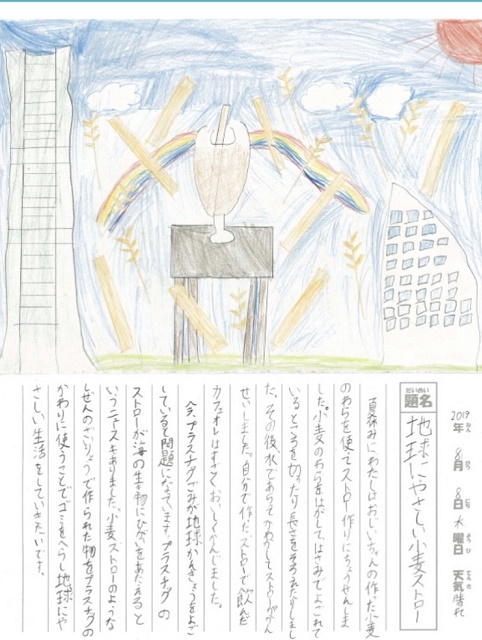 2019年 8月 8日 水曜日 天気 晴れ
題名 地球にやさしい小麦ストロー
夏休みにわたしはおじいちゃんの作った小麦
のわらを使ってストロー作りにちょうせんしま
した。小麦のわらをはがして、はさみでよごれて
いるところを切ったり長さをそろえたりしまし
た。その後水であらってかわかしてストローがかん
せいしました。自分で作ったストローで飲んだ
カフェオレはすごくおいしくかんじました。
今、プラスチックごみが地球かんきょうをよご
していると問題になっています。プラスチックの
ストローが海の生き物にひがいをあたえると
いうニュースもありました。小麦ストローのような
しぜんのざいりょうで作られた物をプラスチックの
かわりに使うことでゴミをへらし地球にや
さしい生活をしていきたいです。